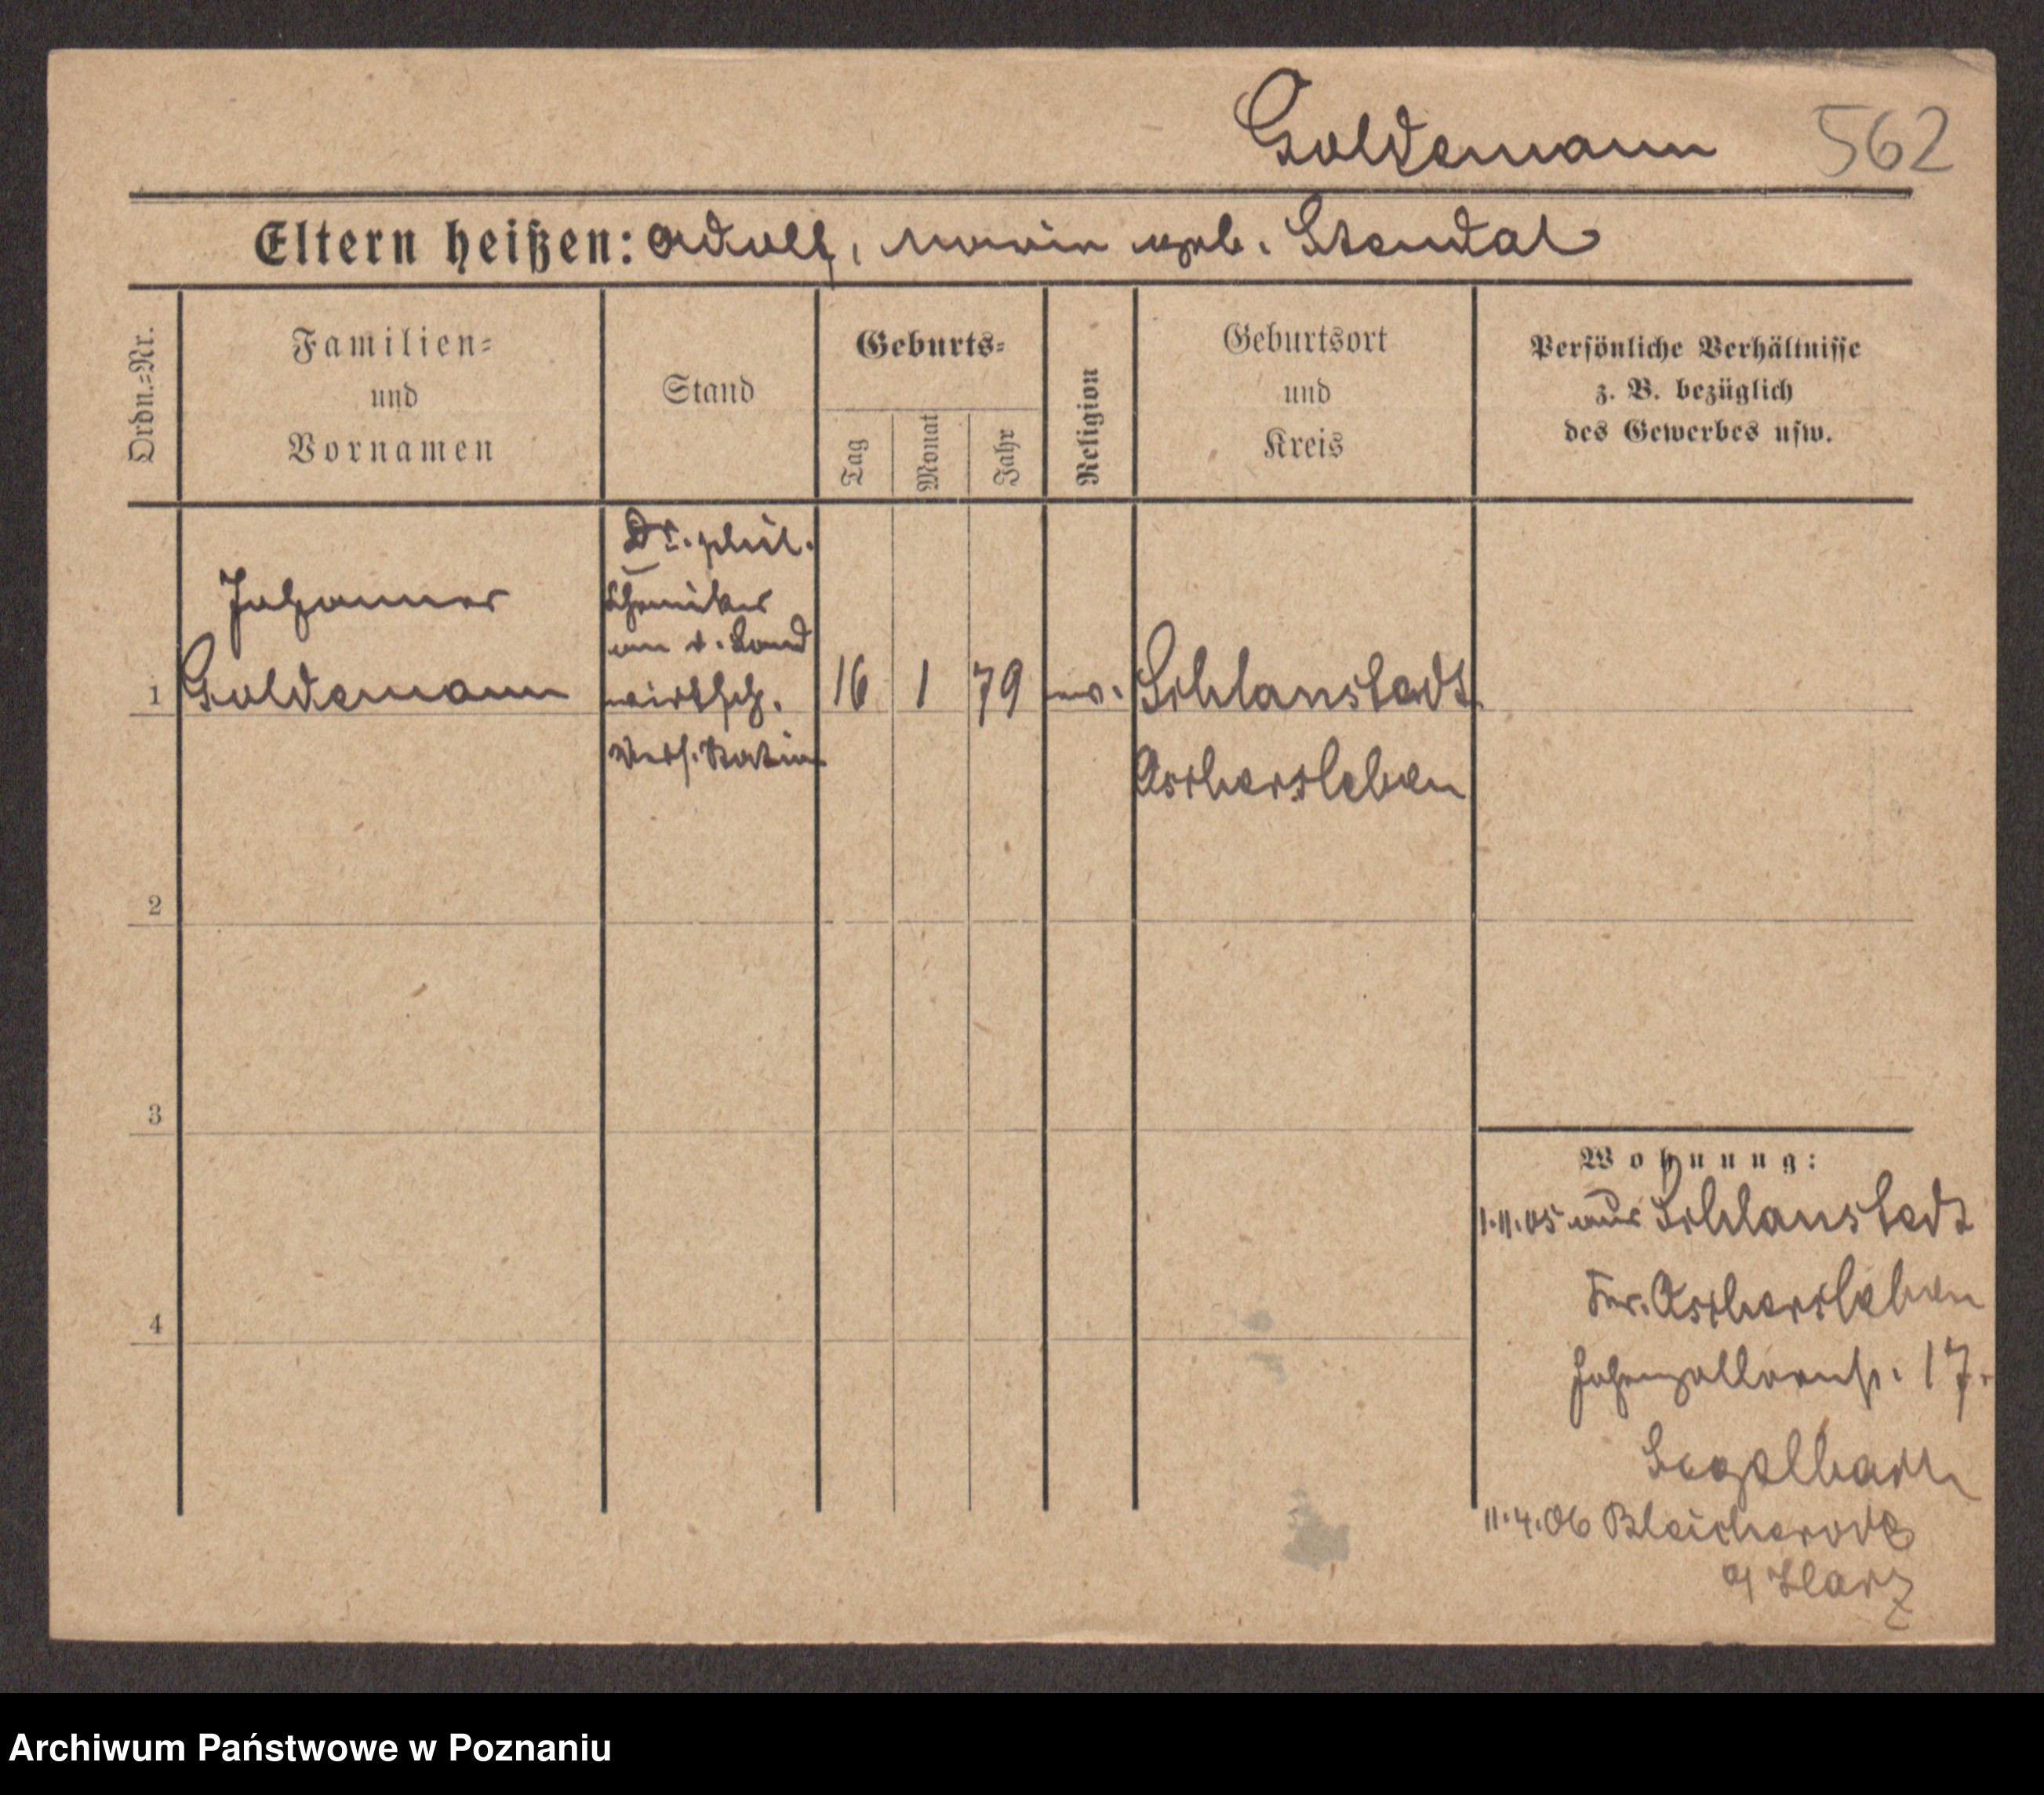 Goldemann 562
Eltern heißen: Adolf, Marie geb. Stendal
Ordn.-Nr.
Familien-
und
Vornamen
Stand
Geburts-
Tag
Monat
Jahr
Religion
Geburtsort
und
Kreis
Persönliche Verhältnisse
z. B. bezüglich
des Gewerbes usw.
Dr. phil.
Johannes
Chemiker
an d. Land
1 Goldemann wirtsch. 16 1 79 ev. Schlanstedt
Vers. Station
Aschersleben
2
3
4
Wohnung:
1.11.05 aus Schlanstedt
Kr. Aschersleben
Hohenzollernstr. 17.
11.4.06 Bleicherode
a/ Harz
Archiwum Państwowe w Poznaniu